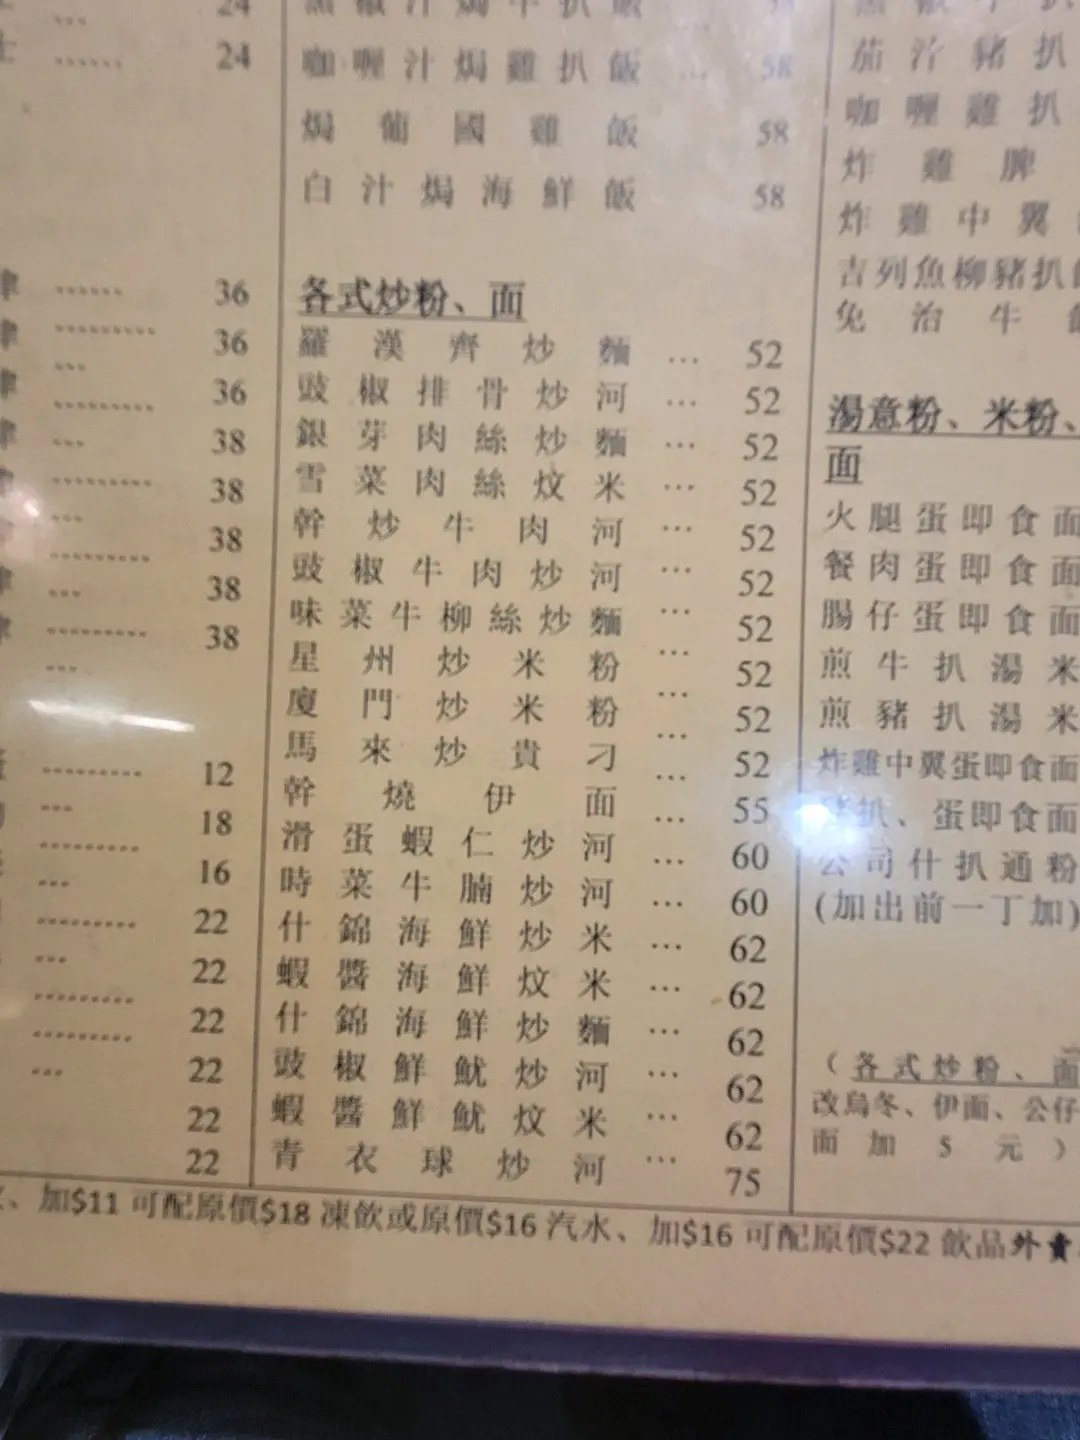 24
24
咖喱汁焗雞扒飯 ... 58
焗葡國雞飯 58
白汁焗海鮮飯 58
36
36
36
38
38
38
38
38
12
18
16
22
22
22
22
22
22
各式炒粉、面
羅漢齊炒麵 ... 52
豉椒排骨炒河 ... 52
銀芽肉絲炒麵 ... 52
雪菜肉絲炆米 ... 52
幹炒牛肉河 ... 52
豉椒牛肉炒河 ... 52
味菜牛柳絲炒麵 ... 52
星州炒米粉 ... 52
廈門炒米粉 ... 52
馬來炒貴刁 ... 52
幹燒伊面 ... 55
滑蛋蝦仁炒河 ... 60
時菜牛腩炒河 ... 60
什錦海鮮炒米 ... 62
蝦醬海鮮炆米 ... 62
什錦海鮮炒麵 ... 62
豉椒鮮魷炒河 ... 62
蝦醬鮮魷炆米 ... 62
青衣球炒河 ... 75
茄汁豬扒
咖喱雞扒
炸雞脾
炸雞中翼
吉列魚柳豬扒
免治牛
湯意粉、米粉、
面
火腿蛋即食面
餐肉蛋即食面
腸仔蛋即食面
煎牛扒湯米
煎豬扒湯米
炸雞中翼蛋即食面
豬扒、蛋即食面
公司什扒通粉
(加出前一丁加)
（各式炒粉、面
改烏冬、伊面、公仔
面加5元）
、加$11 可配原價$18 凍飲或原價$16 汽水、加$16 可配原價$22 飲品外賣